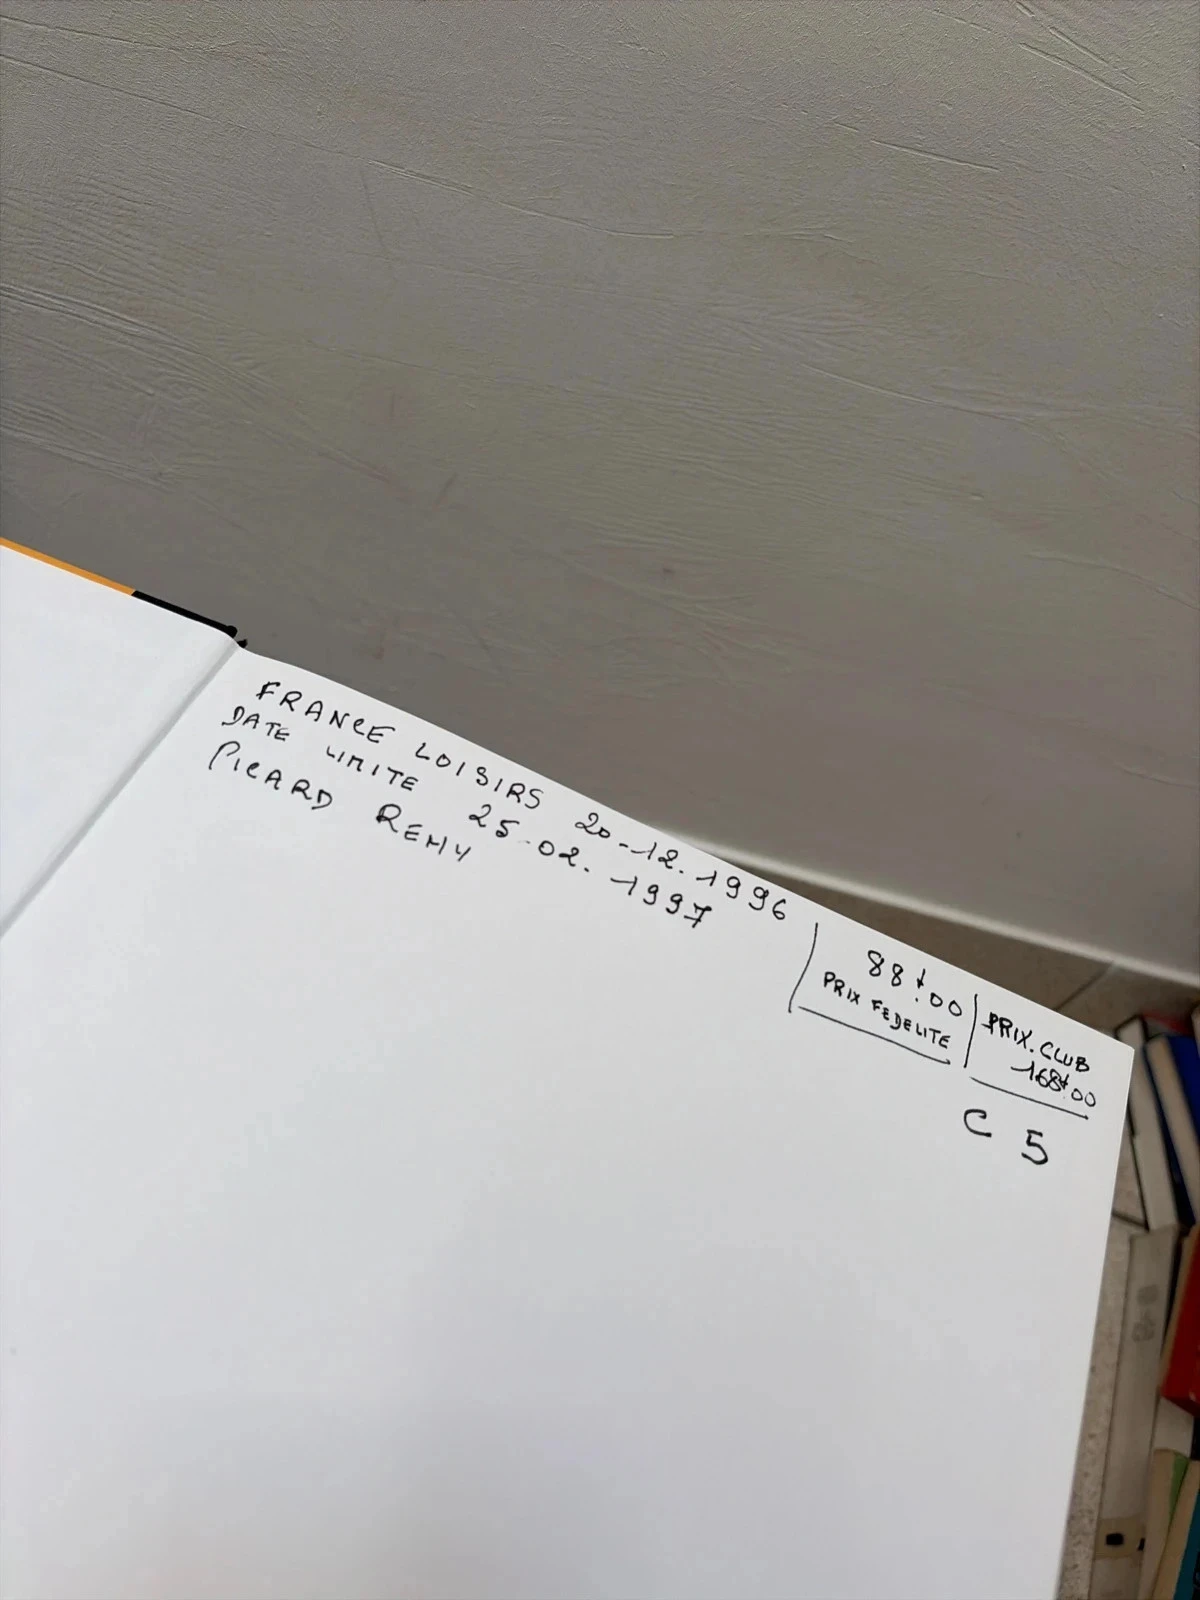 FRANCE LOISIRS 20-12.1996
DATE LIMITE 25.02.1997
PICARD REMY
88f.00
PRIX FEDELITE
PRIX.CLUB
168f.00
C 5